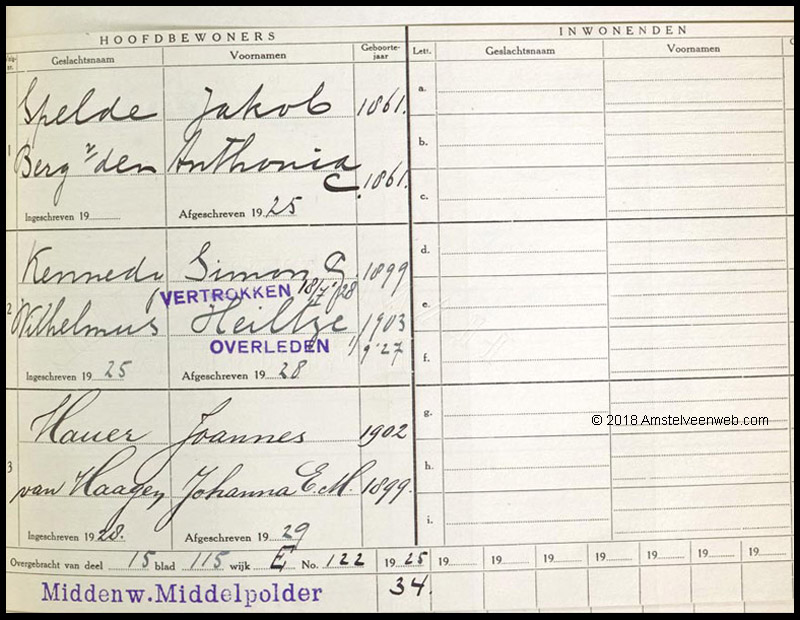 HOOFDBEWONERS
INWONENDEN
Geslachtsnaam Voornamen Geboorte-jaar Lett. Geslachtsnaam Voornamen
Spelde Jakob 1861.
a.
1 Berg v/den Anthonia C. 1861.
b.
c.
Ingeschreven 19 Afgeschreven 1925
d.
Kennedy Simon G 1899
VERTROKKEN 18/7 '28
e.
2 Wilhelmus Heiltje 1903
OVERLEDEN 1/9 '27
f.
Ingeschreven 1925 Afgeschreven 1928
g.
Hauer Joannes 1902
© 2018 Amstelveenweb.com
h.
3 van Haagen Johanna E.M. 1899.
i.
Ingeschreven 1928. Afgeschreven 1929
Overgebracht van deel 15 blad 115 wijk E No. 122 1925 19 19 19 19 19 19 19
Middenw. Middelpolder 34.